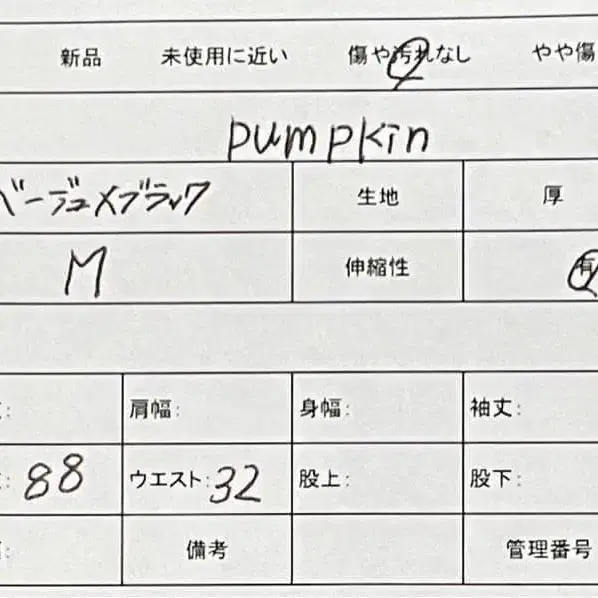 新品 未使用に近い 傷や汚れなし やや傷
pumpkin
ベージュ×ブラック 生地 厚
M 伸縮性 有
: 肩幅: 身幅: 袖丈:
: 88 ウエスト: 32 股上: 股下:
: 備考 管理番号